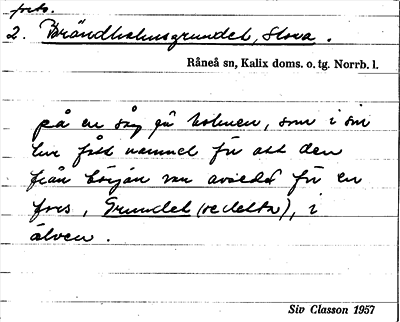 forts.
2. Brändholmsgrundet, Stora.
Råneå sn, Kalix doms. o. tg. Norrb. l.
på en såg på holmen, som i sin
tur fått namnet för att den
från början var avsedd för en
fors, Grundet (se detta), i
älven.
Siv Classon 1957